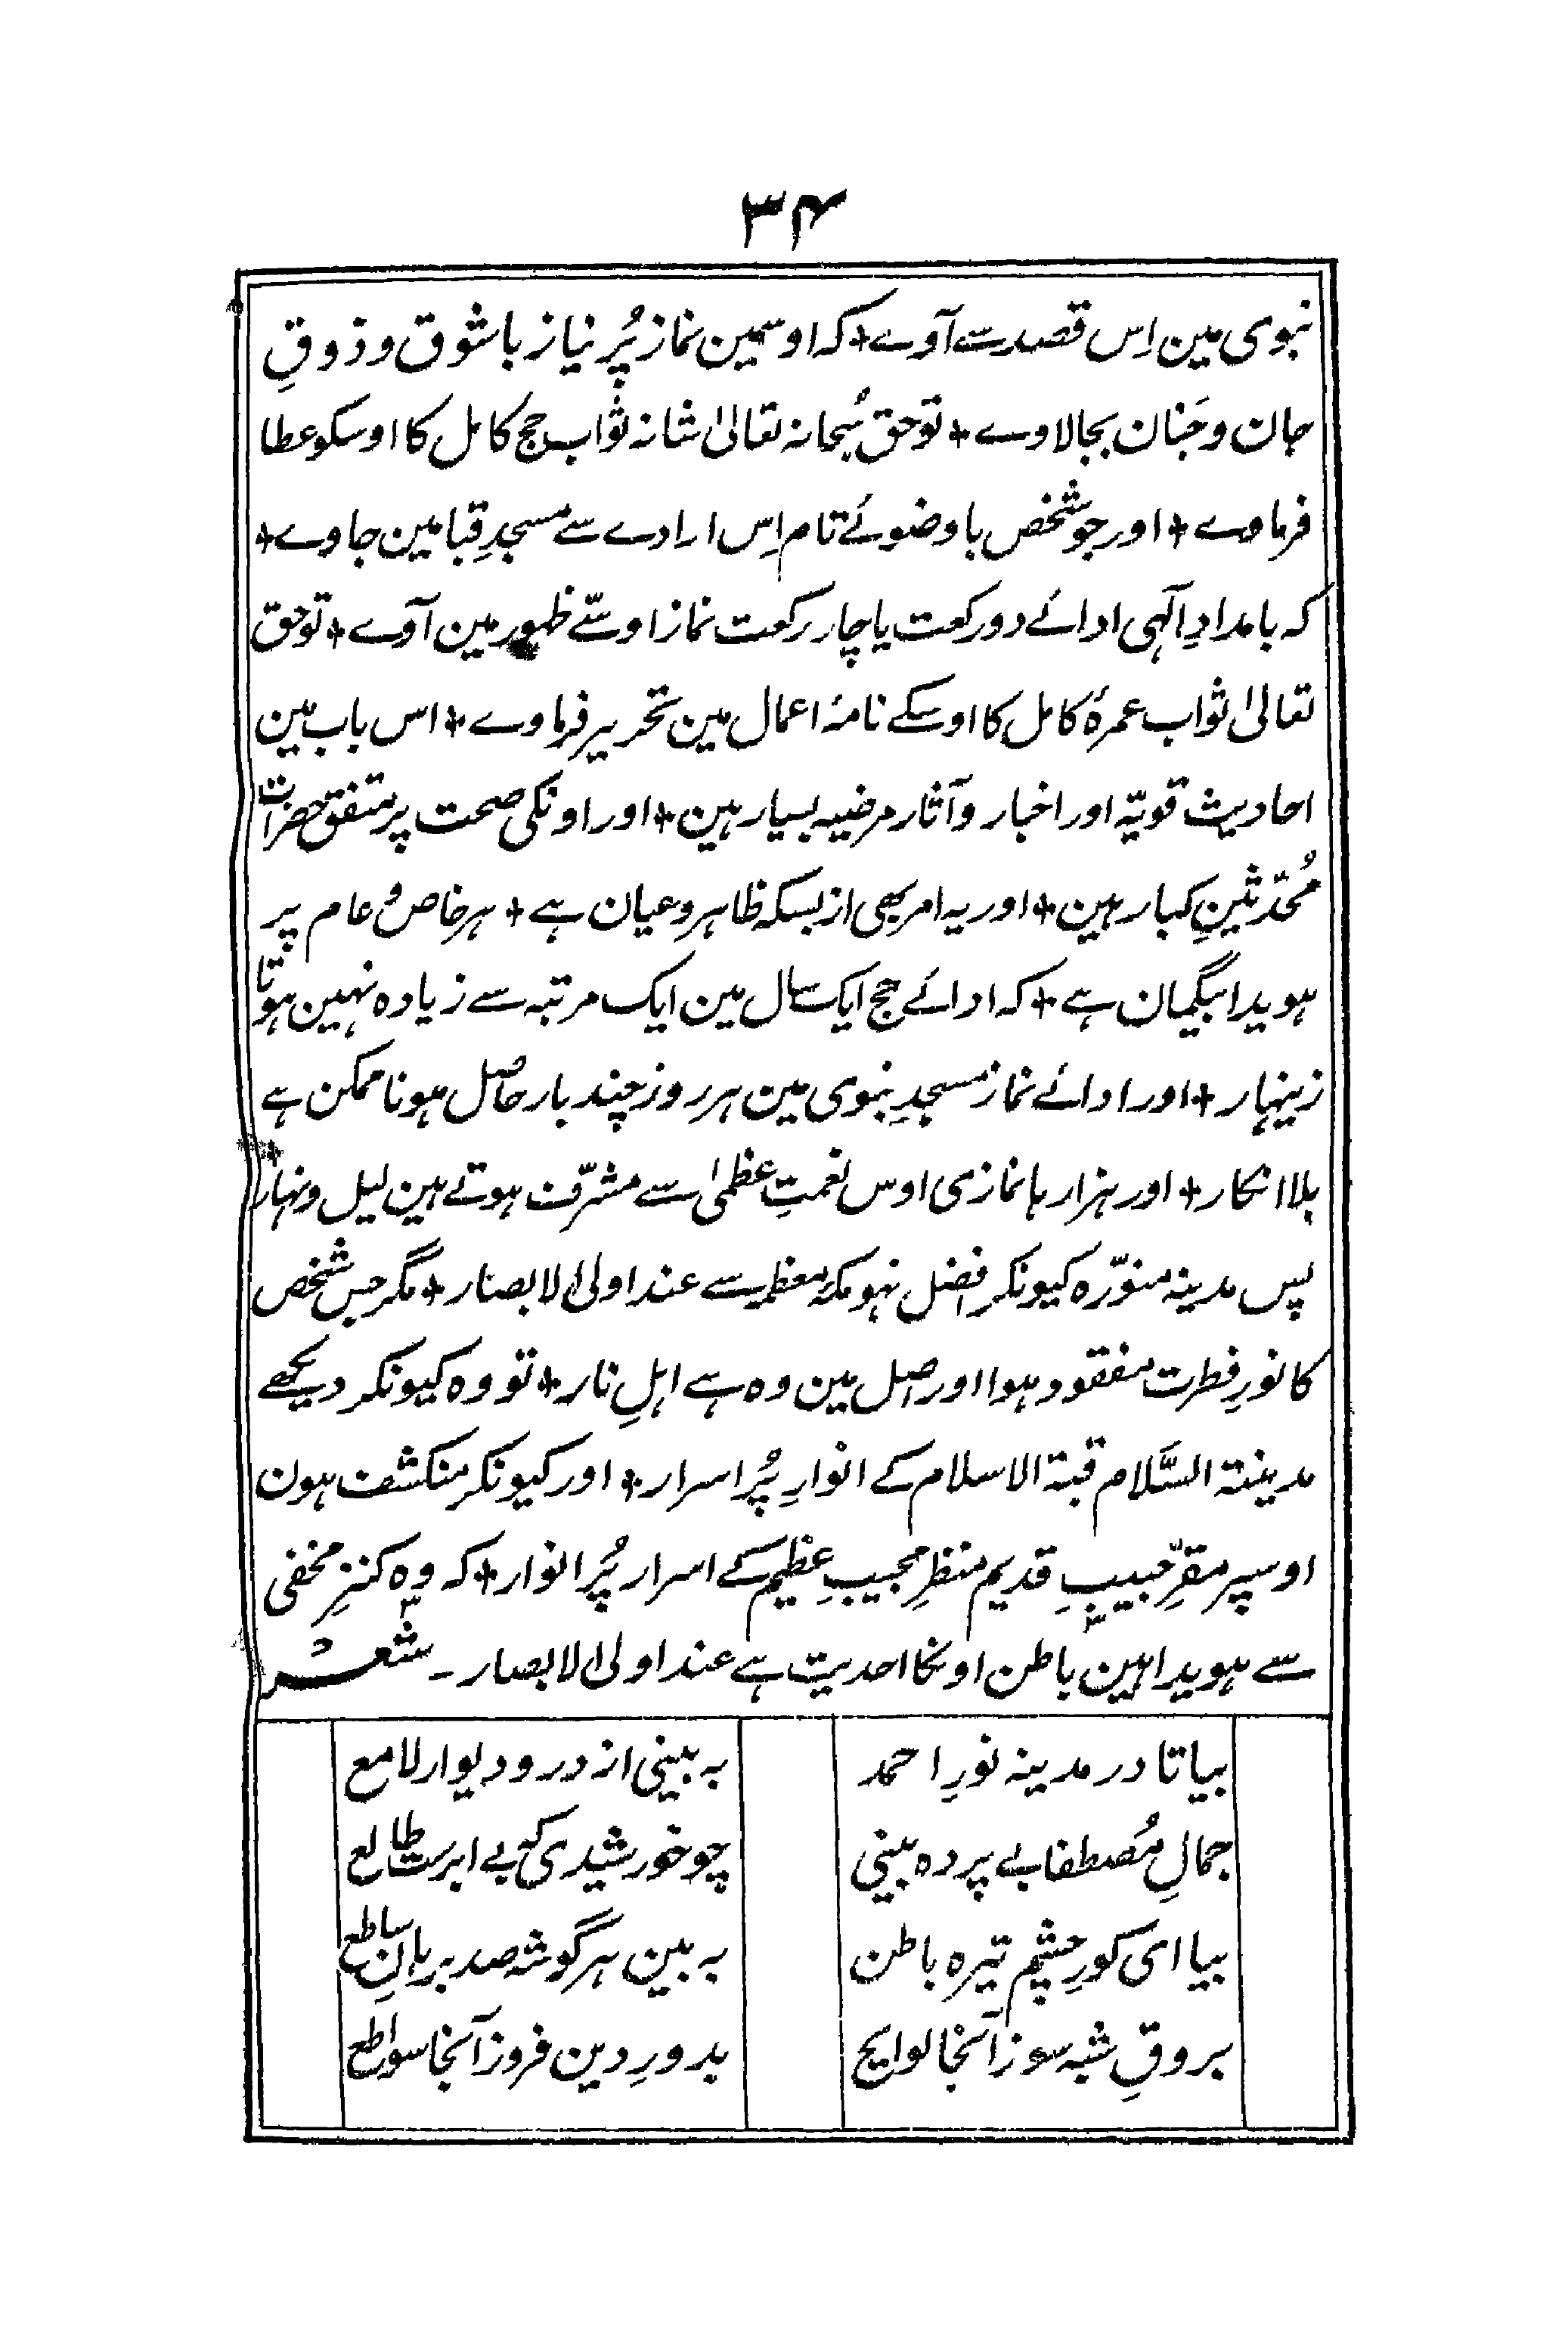 ۳۴
نبوی مین اِس قصد سے آوے + کہ اوسمین نماز پُر نیاز با شوق و ذوقِ
جان و جَنان بجا لاوے + تو حق سُبحانہ تعالیٰ شانہ ثواب حج کامل کا اوسکو عطا
فرماوے + اور جو شخص با وضوئے تام اِس ارادے سے مسجدِ قبا مین جاوے +
کہ بامدادِ الٰہی ادائے دو رکعت یا چار رکعت نماز اوسّے ظہور مین آوے + تو حق
تعالیٰ ثواب عمرۂ کامل کا اوسکے نامۂ اعمال مین تحریر فرماوے + اس باب مین
احادیث قویّہ اور اخبار و آثار مرضیہ بسیار ہین + اور اونکی صحت پر متفق حضرات
مُحدّثینِ کبار ہین + اور یہ امر بھی از بسکہ ظاہر و عیان ہے + ہر خاص و عام پر
ہویدا بیگمان ہے + کہ ادائے حج ایک سال مین ایک مرتبہ سے زیادہ نہین ہوتا
زینہار + اور ادائے نماز مسجدِ نبوی مین ہر روز چند بار حاصل ہونا ممکن ہے
بلا انکار + اور ہزارہا نمازی اوس نعمتِ عظمیٰ سے مشرّف ہوتے ہین لیل و نہار +
پس مدینہ منوّرہ کیونکر افضل نہو مکہ معظمہ سے عند اولی الابصار + مگر جس شخص
کا نورِ فطرت مفقود ہوا اور اصل مین وہ ہے اہلِ نار + تو وہ کیونکر دیکھے
مدینۃ السَّلام قبۃ الاسلام کے انوارِ پُر اسرار + اور کیونکر منکشف ہون
اوسپر مقرِّ حبیبِ قدیم منظرِ مجیبِ عظیم کے اسرار پُر انوار + کہ وہ کنزِ مخفی
سے ہویدا ہین باطن اونکا احدیت ہے عند اولی الابصار ۔ شعر
بیا تا در مدینہ نورِ احمد بہ بینی از در و دیوار لامع
جمالِ مُصطفا بے پردہ بینی چو خورشیدی کہ بے ابرست طالع
بیا ای کورِ چشم تیرہ باطن بہ بین ہر گوشہ صد برہانِ ساطع
بروقِ شبہ سوز آنجا لوایح بدورِ دین فروز آنجا سواطع